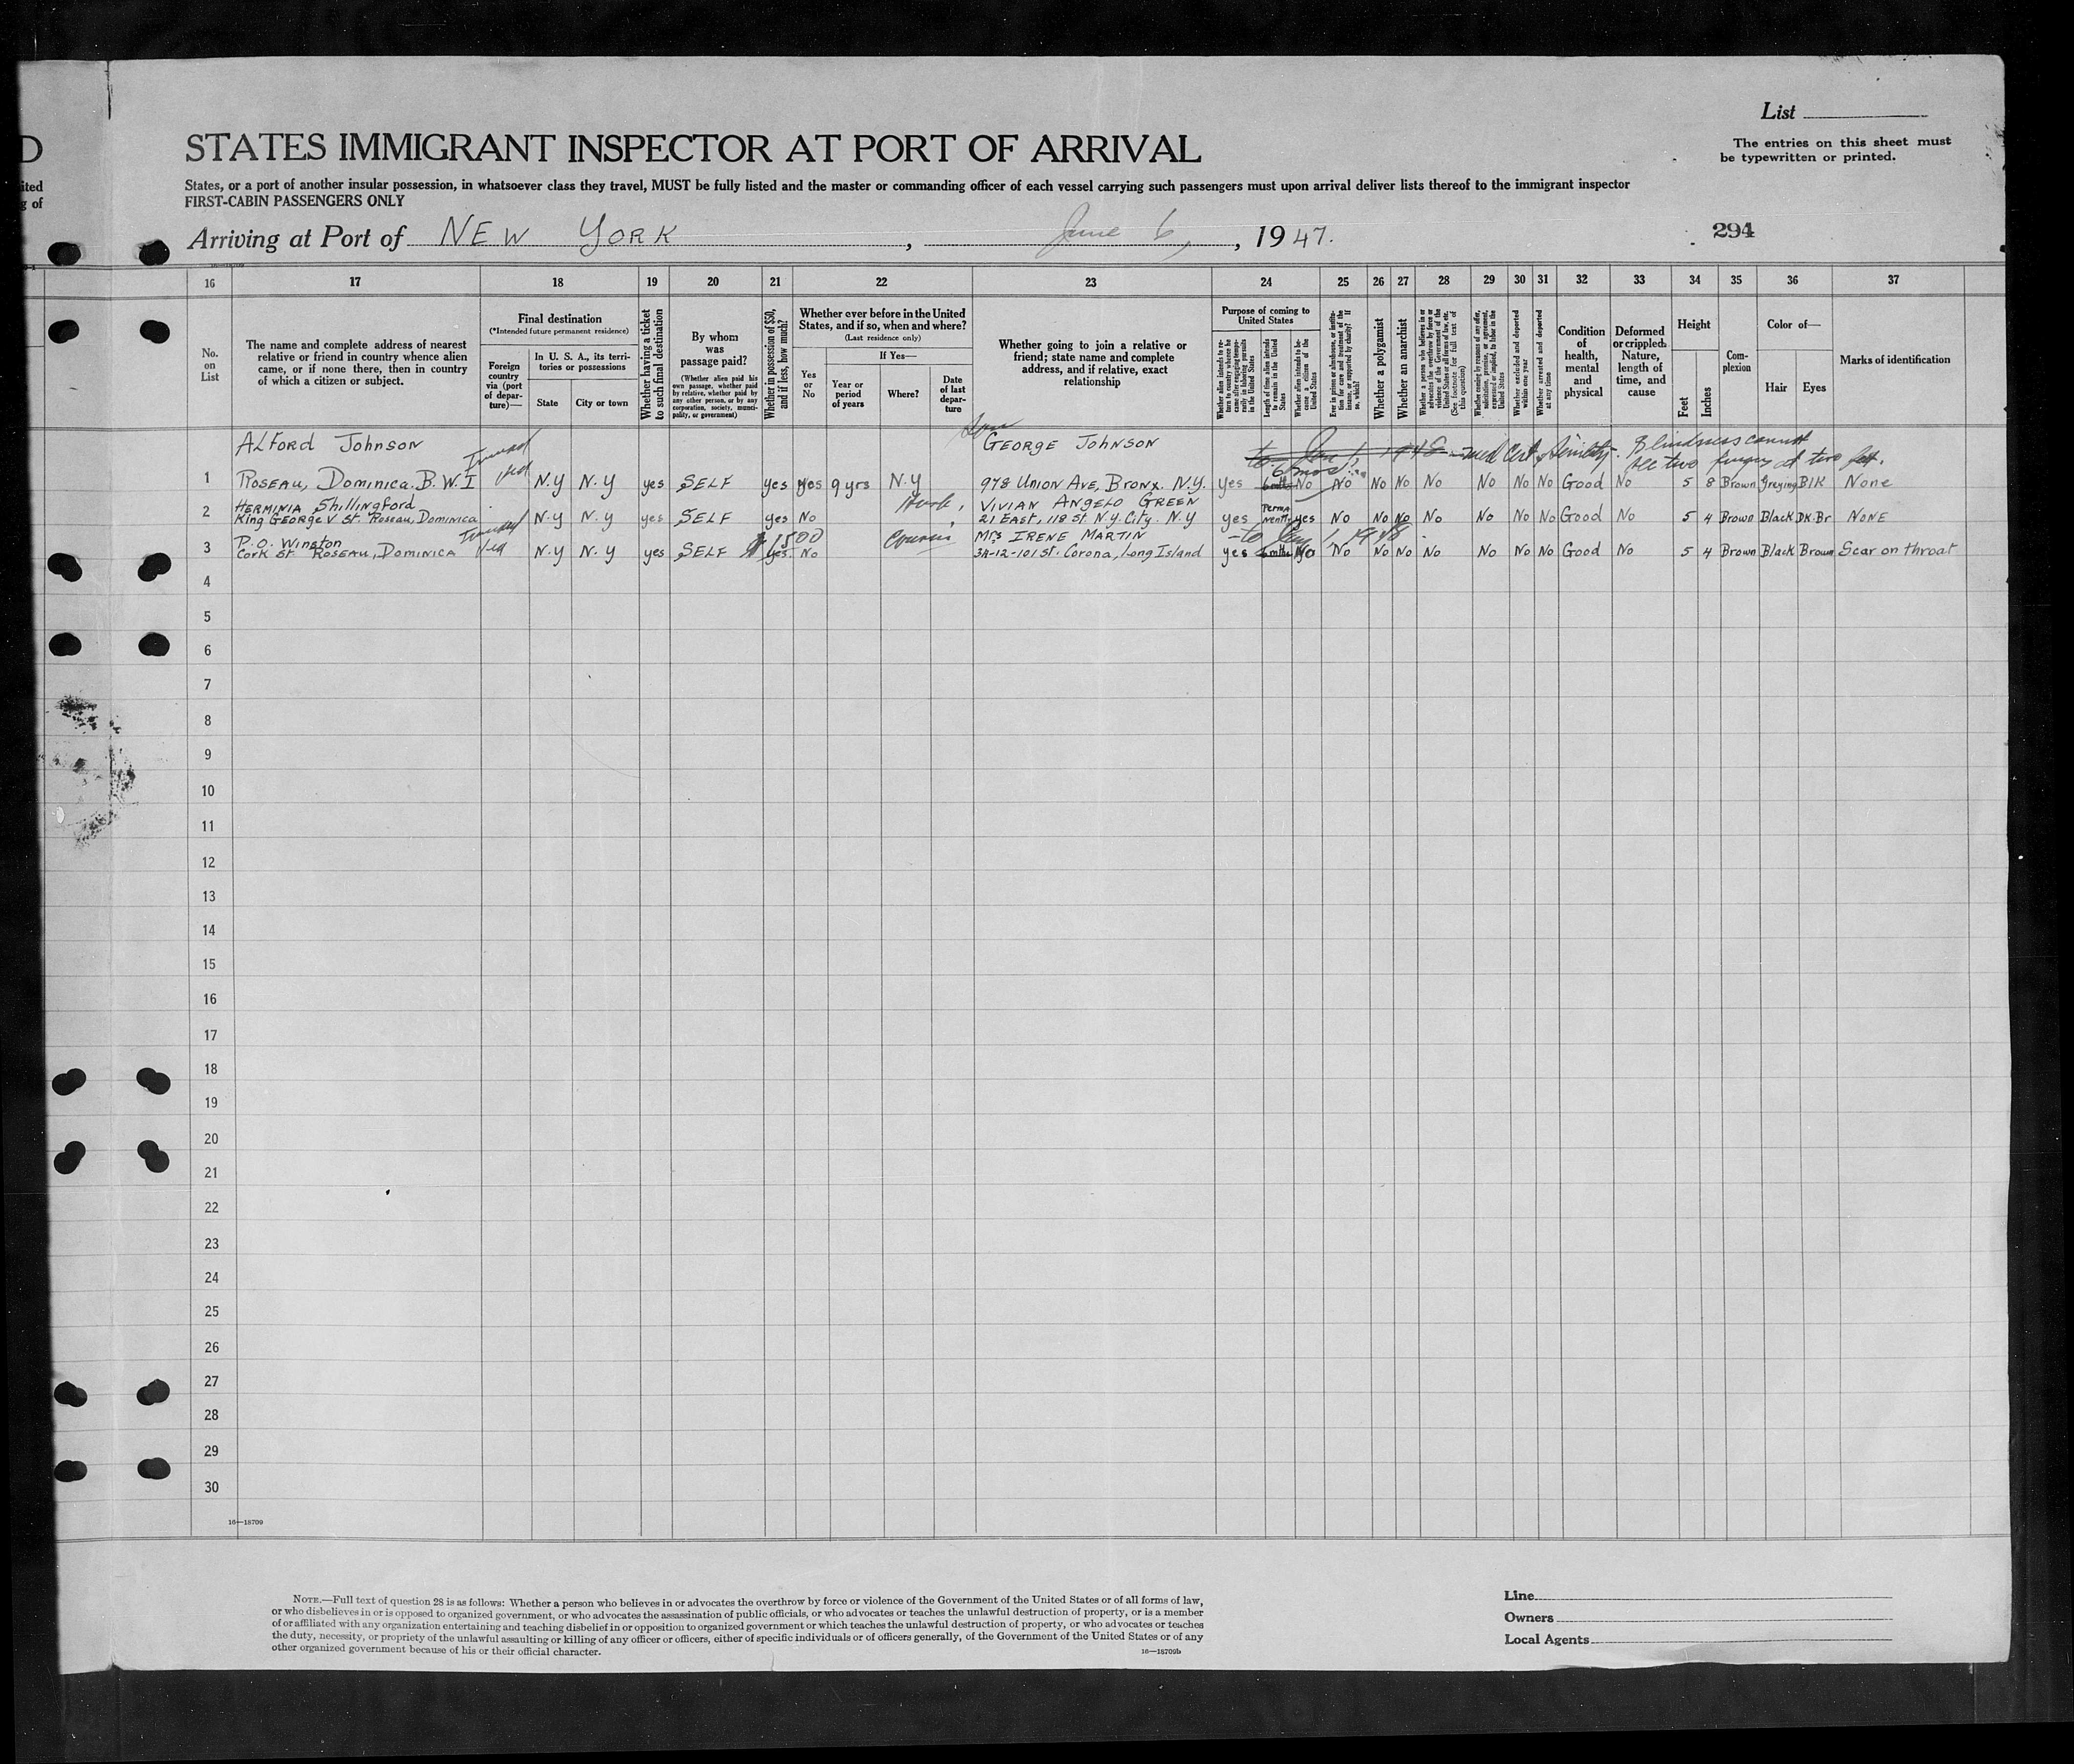 List
The entries on this sheet must
be typewritten or printed.
D
STATES IMMIGRANT INSPECTOR AT PORT OF ARRIVAL
ited
g of
States, or a port of another insular possession, in whatsoever class they travel, MUST be fully listed and the master or commanding officer of each vessel carrying such passengers must upon arrival deliver lists thereof to the immigrant inspector
FIRST-CABIN PASSENGERS ONLY
Arriving at Port of NEW YORK, June 6, , 1947.
294
16 17 18 19 20 21 22 23 24 25 26 27 28 29 30 31 32 33 34 35 36 37
No. on List
The name and complete address of nearest relative or friend in country whence alien came, or if none there, then in country of which a citizen or subject.
Final destination
(*Intended future permanent residence)
Foreign country via (port of departure)—
In U. S. A., its territories or possessions
State
City or town
Whether having a ticket to such final destination
By whom was passage paid?
(Whether alien paid his own passage, whether paid by relative, whether paid by any other person, or by any corporation, society, municipality, or government)
Whether in possession of $50, and if less, how much?
Whether ever before in the United States, and if so, when and where?
(Last residence only)
Yes or No
If Yes—
Year or period of years
Where?
Date of last departure
Whether going to join a relative or friend; state name and complete address, and if relative, exact relationship
Purpose of coming to United States
Whether alien intends to return to country whence he came after engaging temporarily in laboring pursuits in the United States
Length of time alien intends to remain in the United States
Whether alien intends to become a citizen of the United States
Ever in prison or almshouse, or institution for care and treatment of the insane, or supported by charity? If so, which?
Whether a polygamist
Whether an anarchist
Whether a person who believes in or advocates the overthrow by force or violence of the Government of the United States or all forms of law, etc. (See footnote for full text of this question)
Whether coming by reasons of any offer, solicitation, promise, or agreement, expressed or implied, to labor in the United States
Whether excluded and deported within one year
Whether arrested and deported at any time
Condition of health, mental and physical
Deformed or crippled. Nature, length of time, and cause
Height
Feet
Inches
Complexion
Color of—
Hair
Eyes
Marks of identification
ALFORD JOHNSON Son GEORGE JOHNSON to Jan 1, 1948 - med cert, Senility. Blindness cannot
6 mos. see two fingers at two feet.
1 ROSEAU, DOMINICA. B. W. I N.Y N.Y yes SELF yes yes 9 yrs N.Y 978 UNION AVE, BRONX. N.Y. yes No No No No No No No No Good No 5 8 Brown Greying Blk None
HERMINIA Shillingford Husb, VIVIAN ANGELO GREEN PERMA
2 King GEORGE V St. ROSEAU, DOMINICA N.Y N.Y yes SELF yes No 21 EAST, 118 St N.Y. City. N.Y yes NENT. yes No No No No No No No Good No 5 4 Brown Black DK.Br NONE
P.O. Winston $1500 Cousin MRS IRENE MARTIN
3 Cork St. ROSEAU, DOMINICA N.Y N.Y yes SELF yes No 34-12-101 St. Corona, Long Island yes 6 mths No No No No No No No No Good No 5 4 Brown Black Brown Scar on throat
4
5
6
7
8
9
10
11
12
13
14
15
16
17
18
19
20
21
22
23
24
25
26
27
28
29
30
16—18709
NOTE.—Full text of question 28 is as follows: Whether a person who believes in or advocates the overthrow by force or violence of the Government of the United States or of all forms of law,
or who disbelieves in or is opposed to organized government, or who advocates the assassination of public officials, or who advocates or teaches the unlawful destruction of property, or is a member
of or affiliated with any organization entertaining and teaching disbelief in or opposition to organized government or which teaches the unlawful destruction of property, or who advocates or teaches
the duty, necessity, or propriety of the unlawful assaulting or killing of any officer or officers, either of specific individuals or of officers generally, of the Government of the United States or of any
other organized government because of his or their official character.
16—18709b
Line
Owners
Local Agents